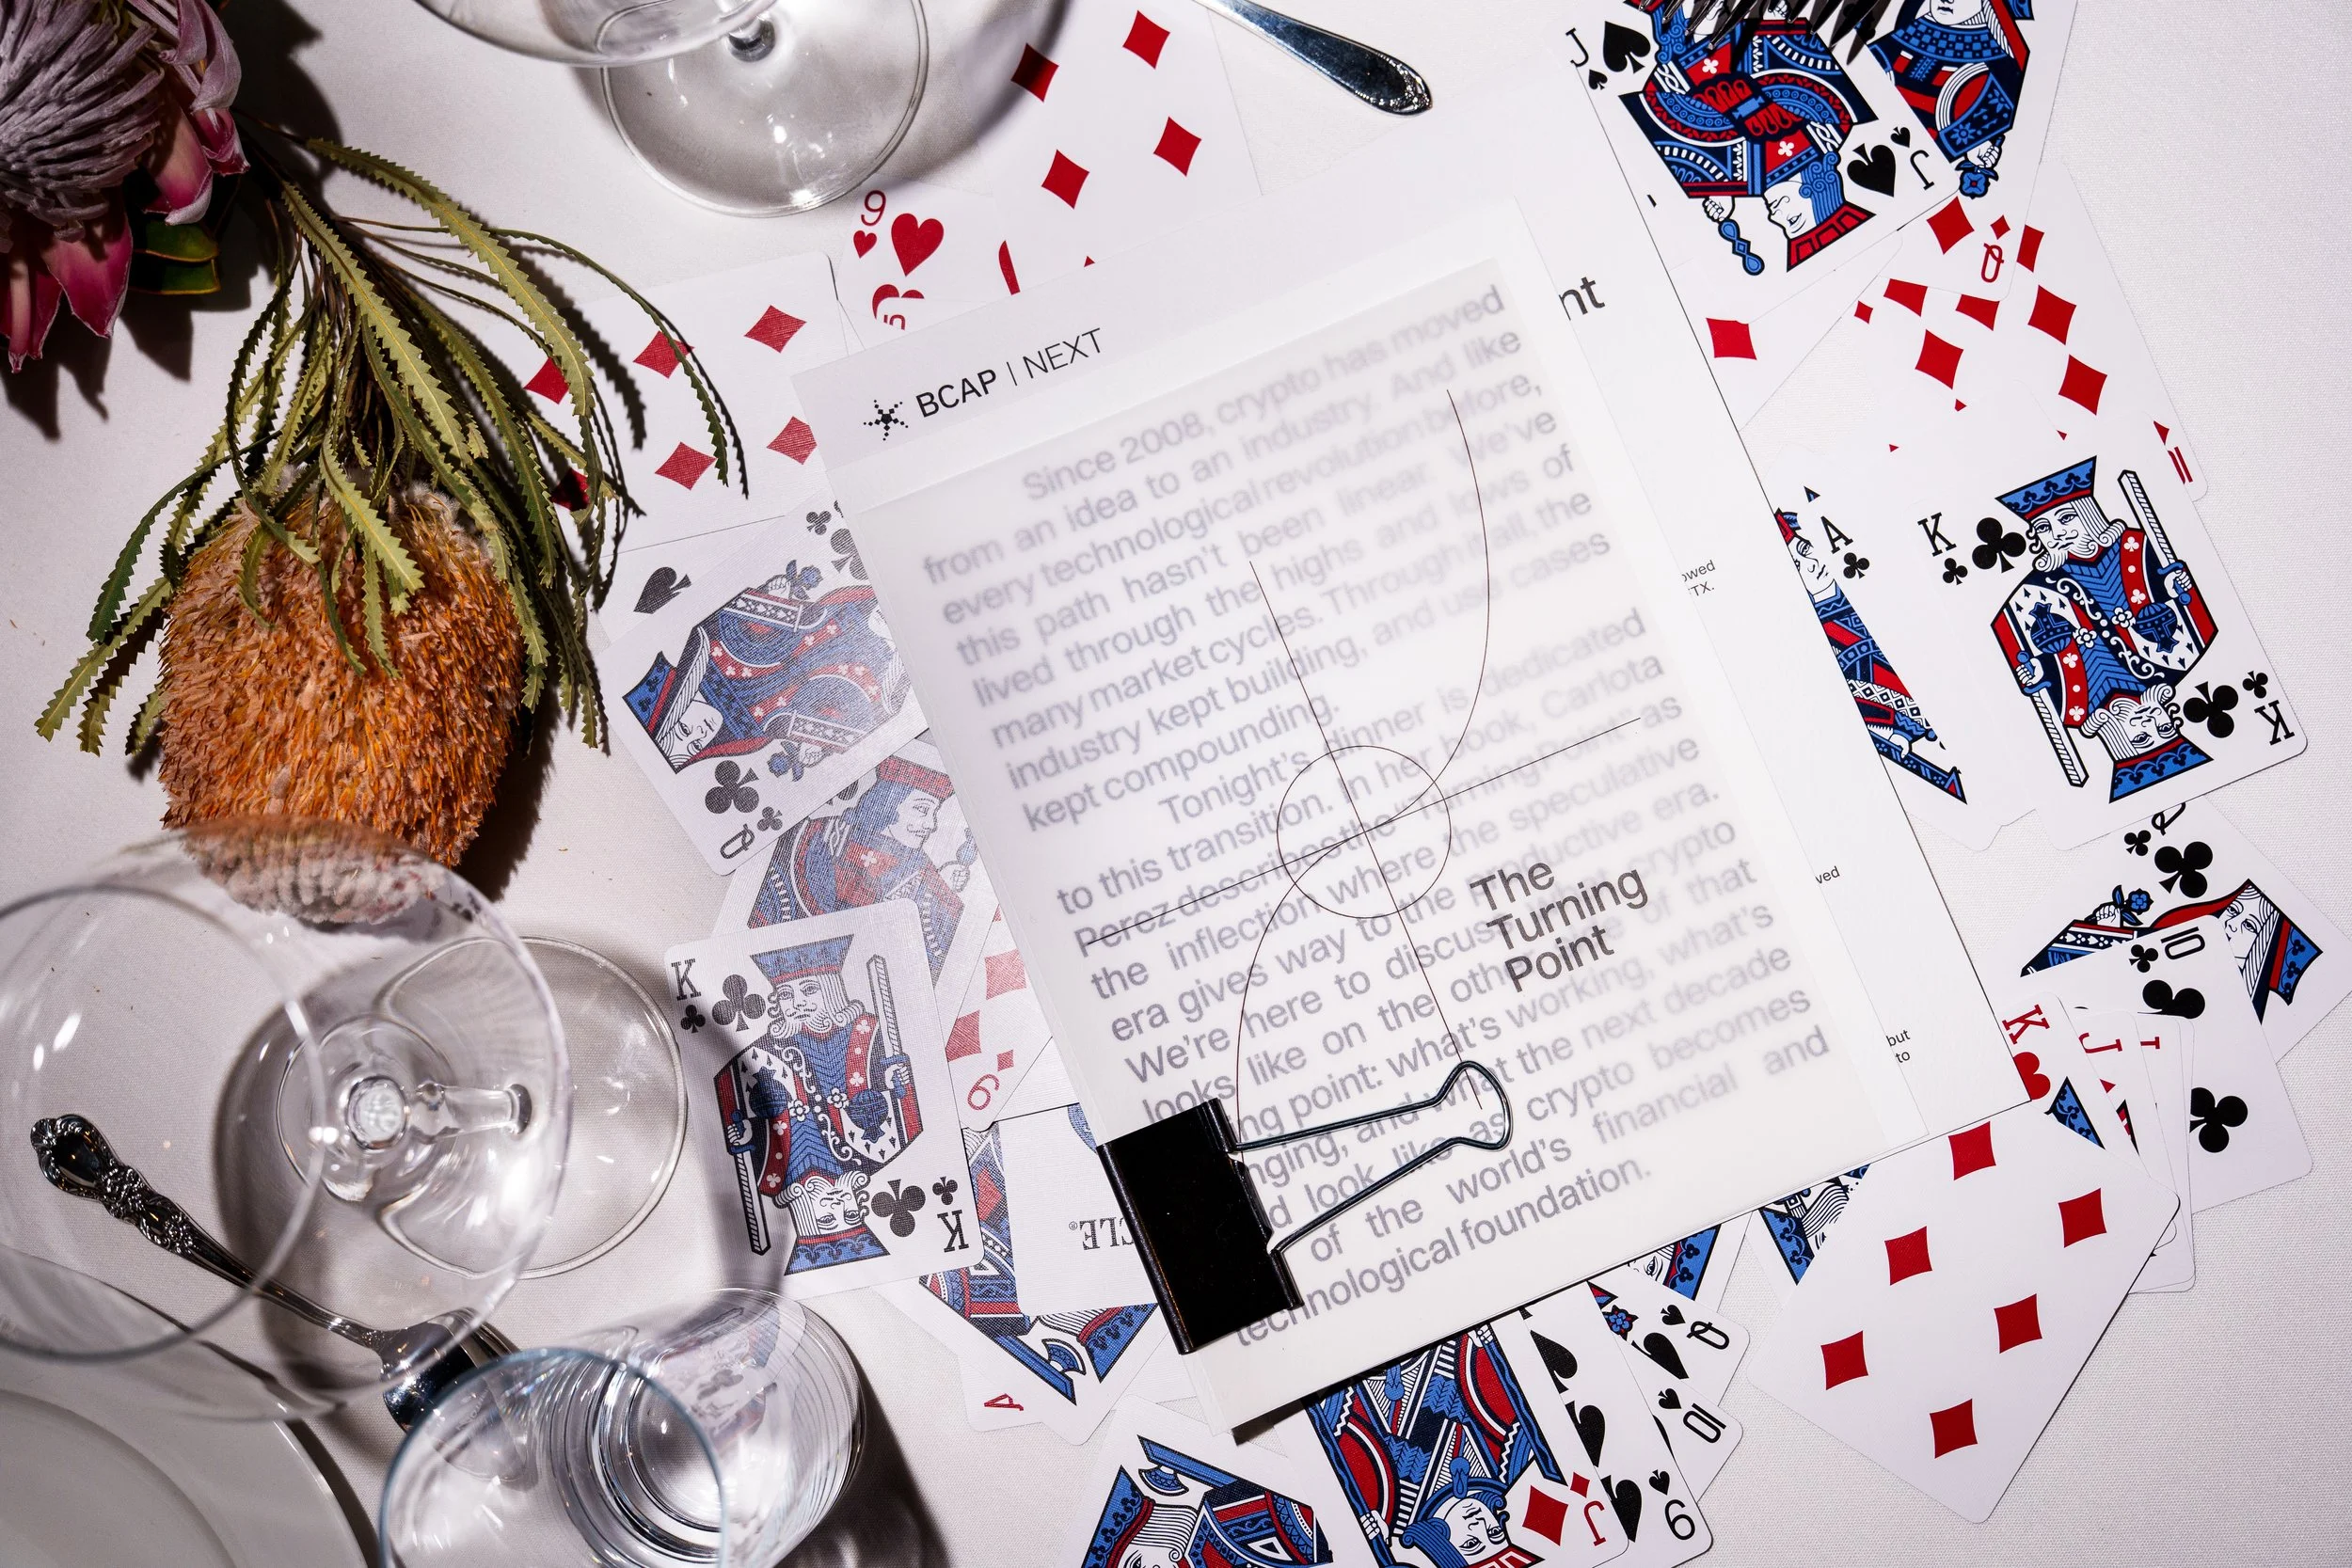 BCAP | NEXT
Since 2008, crypto has moved
from an idea to an industry. And like
every technological revolution before,
this path hasn't been linear. We've
lived through the highs and lows of
many market cycles. Through it all, the
industry kept building, and use cases
kept compounding.
Tonight's dinner is dedicated
to this transition. In her book, Carlota
Perez describes the "Turning Point" as
the inflection where the speculative
era gives way to the productive era.
We're here to discuss what crypto
looks like on the other side of that
ng point: what's working, what's
nging, and what the next decade
d look like as crypto becomes
of the world's financial and
technological foundation.
The
Turning
Point
nt
owed
TX.
ved
but
to
J
J
9
5
Q
A
K
K
Q
K
K
6
CLE®
A
10
K
J
Q
10
J
9